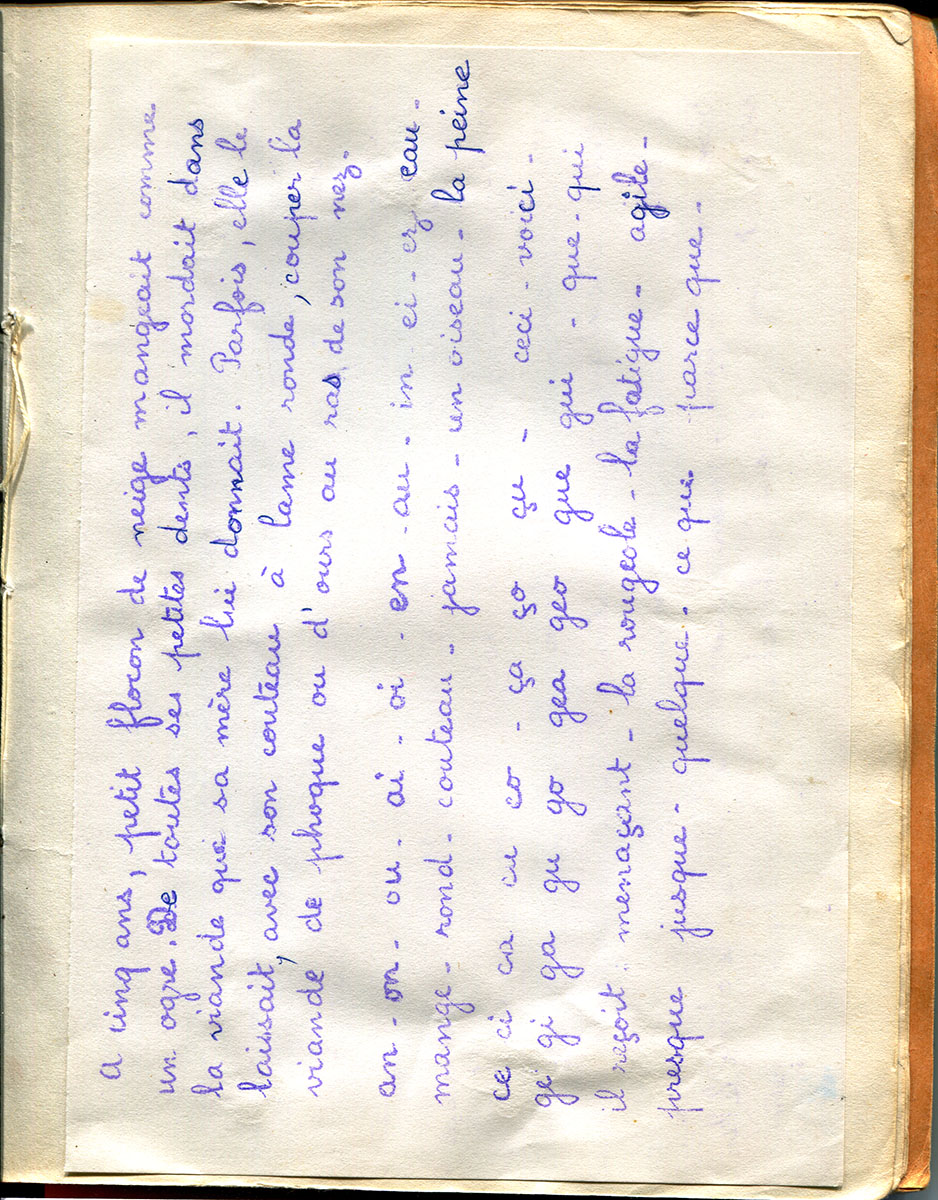 A cinq ans, petit flocon de neige mangeait comme
un ogre. De toutes ses petites dents, il mordait dans
la viande que sa mère lui donnait. Parfois, elle le
laissait, avec son couteau à lame ronde, couper la
viande de phoque ou d'ours au ras de son nez.
an - on - ou - ai - oi - en - au - in - ei - ez eau -
mange - rond - couteau - jamais - un oiseau - la peine
ce ci ca cu co - ça ço çu - ceci - voici -
ge gi ga gu go gea geo gue gui - que - qui
il reçoit menaçant - la rougeole - la fatigue - agile -
presque jusque - quelque - ce que parce que -